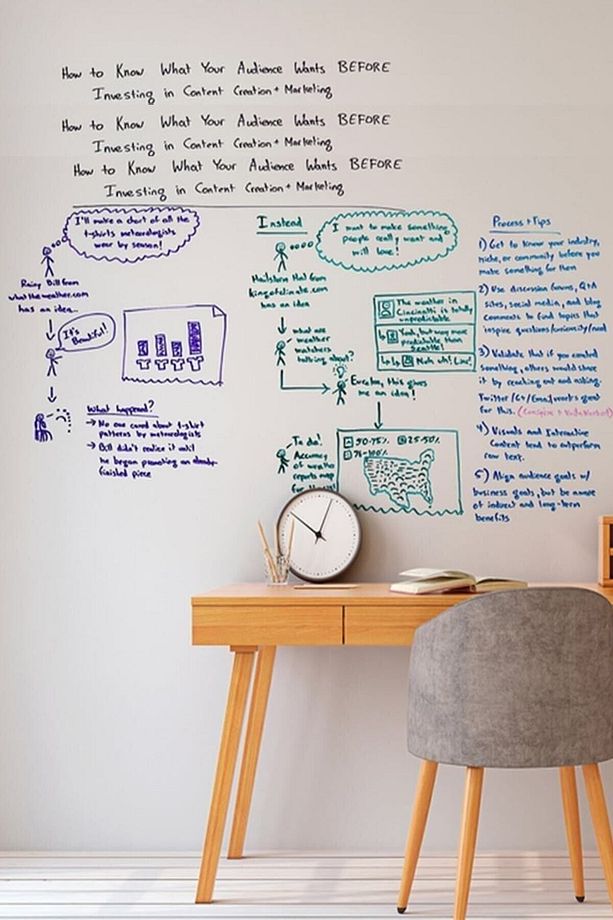 How to Know What Your Audience Wants BEFORE
Investing in Content Creation + Marketing
How to Know What Your Audience Wants BEFORE
Investing in Content Creation + Marketing
How to Know What Your Audience Wants BEFORE
Investing in Content Creation + Marketing
I'll make a chart of all the
t-shirts meteorologists
wear by season!
Rainy Bill from
whattheweather.com
has an idea...
It's
Beautiful!
What happened?
→ No one cared about t-shirt
patterns by meteorologists
→ Bill didn't realize it until
he began promoting an already-
finished piece
Instead
I want to make something
people really want and
will love!
Hailstorm Hal from
kingofclimate.com
has an idea
what are
weather
watchers
talking about?
The weather in
Cincinatti is totally
unpredictable
Yeah, but way more
predictable than
Seattle!
Nuh uh! Liar!
Eureka, this gives
me an idea!
To do!
Accuracy
of weather
reports map
50-75%
25-50%
76-100%
Process + Tips
1) Get to know your industry,
niche, or community before you
make something for them
2) Use discussion forums, Q+A
sites, social media, and blog
comments to find topics that
inspire questions/curiosity/need
3) Validate that if you created
something, others would share
it by reaching out and asking.
Twitter/G+/Email works great
for this.
4) Visuals and Interactive
Content tend to outperform
raw text.
5) Align audience goals w/
business goals, but be aware
of indirect and long-term
benefits